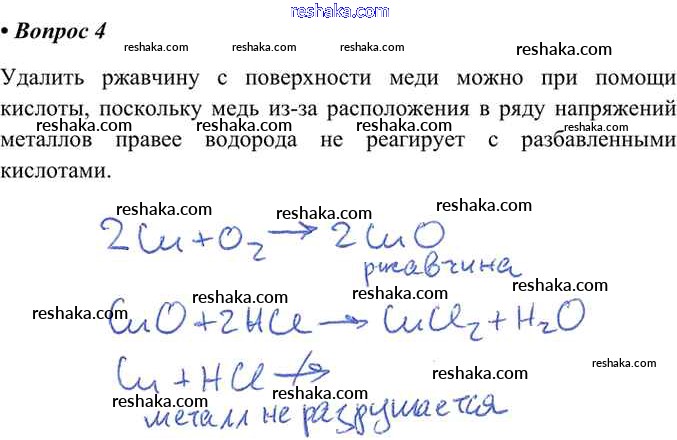 reshaka.com
• Вопрос 4
reshaka.com reshaka.com reshaka.com reshaka.com
Удалить ржавчину с поверхности меди можно при помощи
кислоты, поскольку медь из-за расположения в ряду напряжений
reshaka.com reshaka.com reshaka.com reshaka.com
металлов правее водорода не реагирует с разбавленными
кислотами.
reshaka.com reshaka.com reshaka.com
reshaka.com
2Cu + O₂ → 2CuO
reshaka.com reshaka.com
ржавчина
reshaka.com reshaka.com reshaka.com
reshaka.com
CuO + 2HCl → CuCl₂ + H₂O
reshaka.com reshaka.com
Cu + HCl ↛
reshaka.com reshaka.com reshaka.com
металл не разрушается
reshaka.com